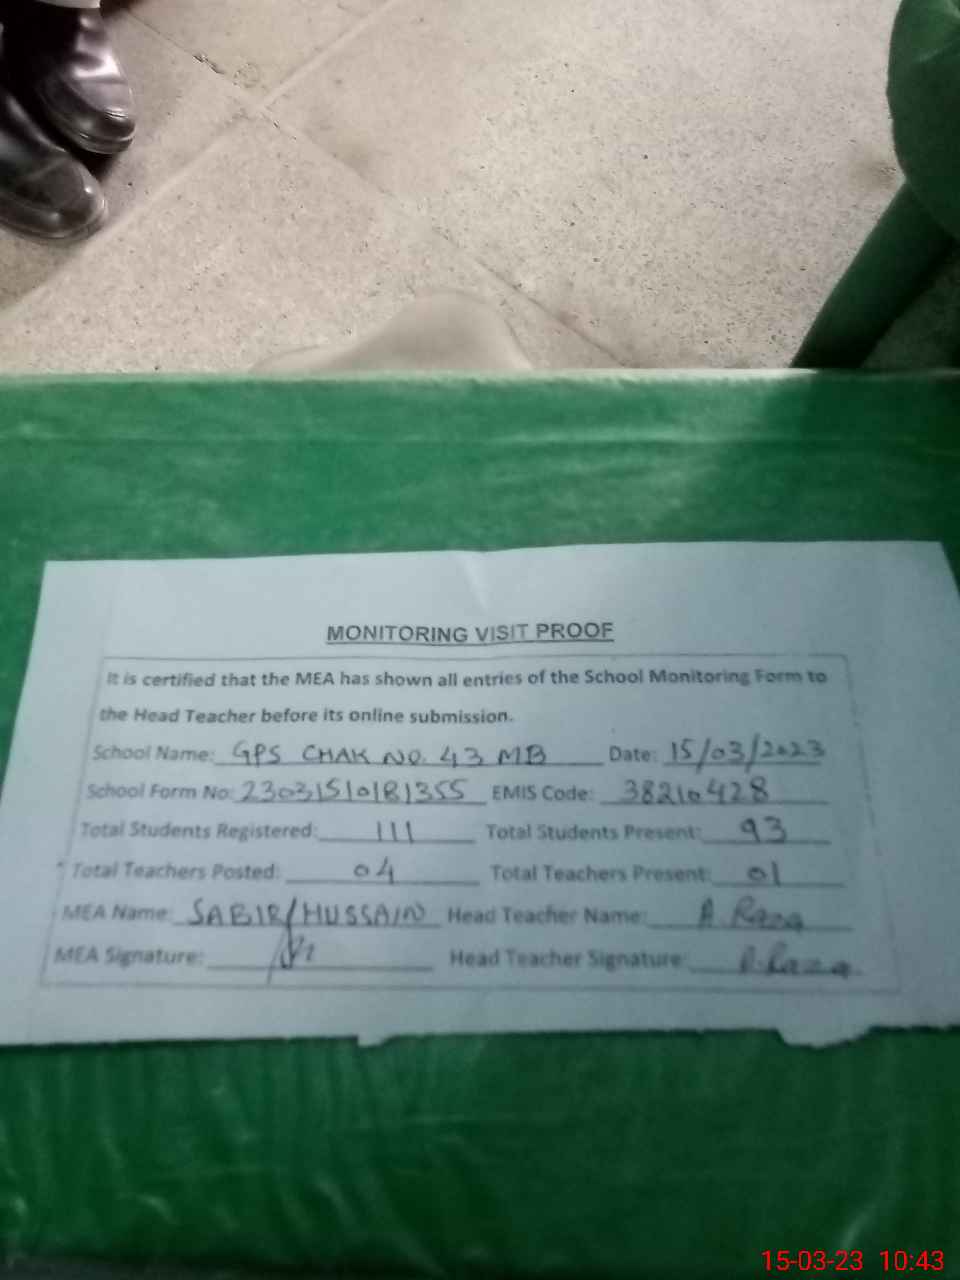 MONITORING VISIT PROOF
It is certified that the MEA has shown all entries of the School Monitoring Form to
the Head Teacher before its online submission.
School Name: GPS CHAK NO. 43 MB Date: 15/03/2023
School Form No: 23031510181355 EMIS Code: 38210428
Total Students Registered: 111 Total Students Present: 93
Total Teachers Posted: 04 Total Teachers Present: 01
MEA Name: SABIR HUSSAIN Head Teacher Name: A. Raza
MEA Signature: Head Teacher Signature: A. Raza
15-03-23 10:43